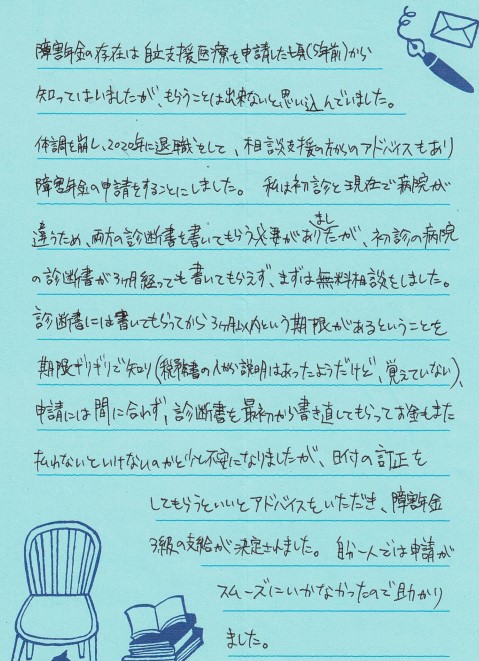 障害年金の存在は自立支援医療を申請した頃(5年前)から
知ってはいましたが、もらうことは出来ないと思い込んでいました。
体調を崩し、2020年に退職をして、相談支援の方からのアドバイスもあり
障害年金の申請をすることにしました。 私は初診と現在で病院が
違うため、両方の診断書を書いてもらう必要がありましたが、初診の病院
の診断書が3ヶ月経っても書いてもらえず、まずは無料相談をしました。
診断書には書いてもらってから3ヶ月以内という期限があるということを
期限ギリギリで知り(税務署の人から説明はあったようだけど、覚えていない)、
申請には間に合わず、診断書を最初から書き直してもらってお金もまた
払わないといけないのかと少し不安になりましたが、日付の訂正を
してもらうといいとアドバイスをいただき、障害年金
3級の支給が決定されました。 自分一人では申請が
スムーズにいかなかったので助かり
ました。